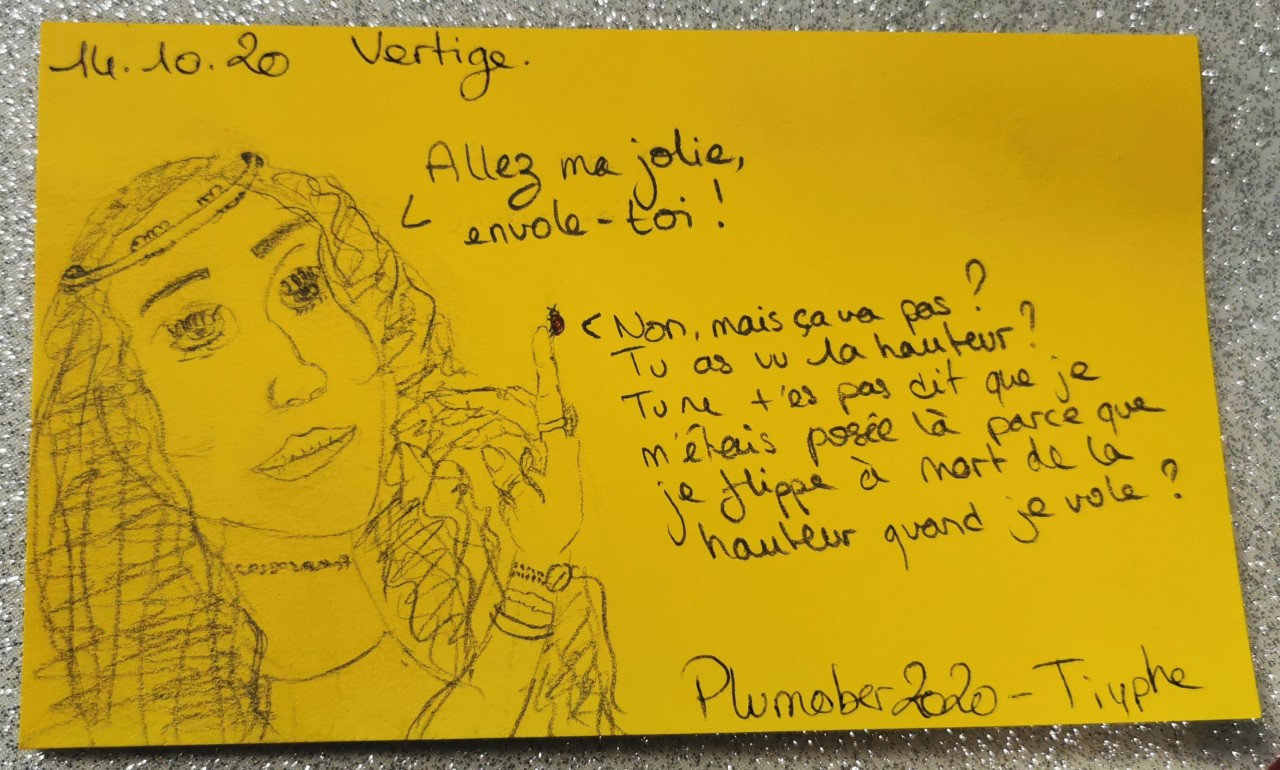 14.10.20 Vertige.
Allez ma jolie,
envole-toi !
Non, mais ça va pas ?
Tu as vu la hauteur ?
Tu ne t'es pas dit que je
m'étais posée là parce que
je flippe à mort de la
hauteur quand je vole ?
Plumober2020 - Tiyphe